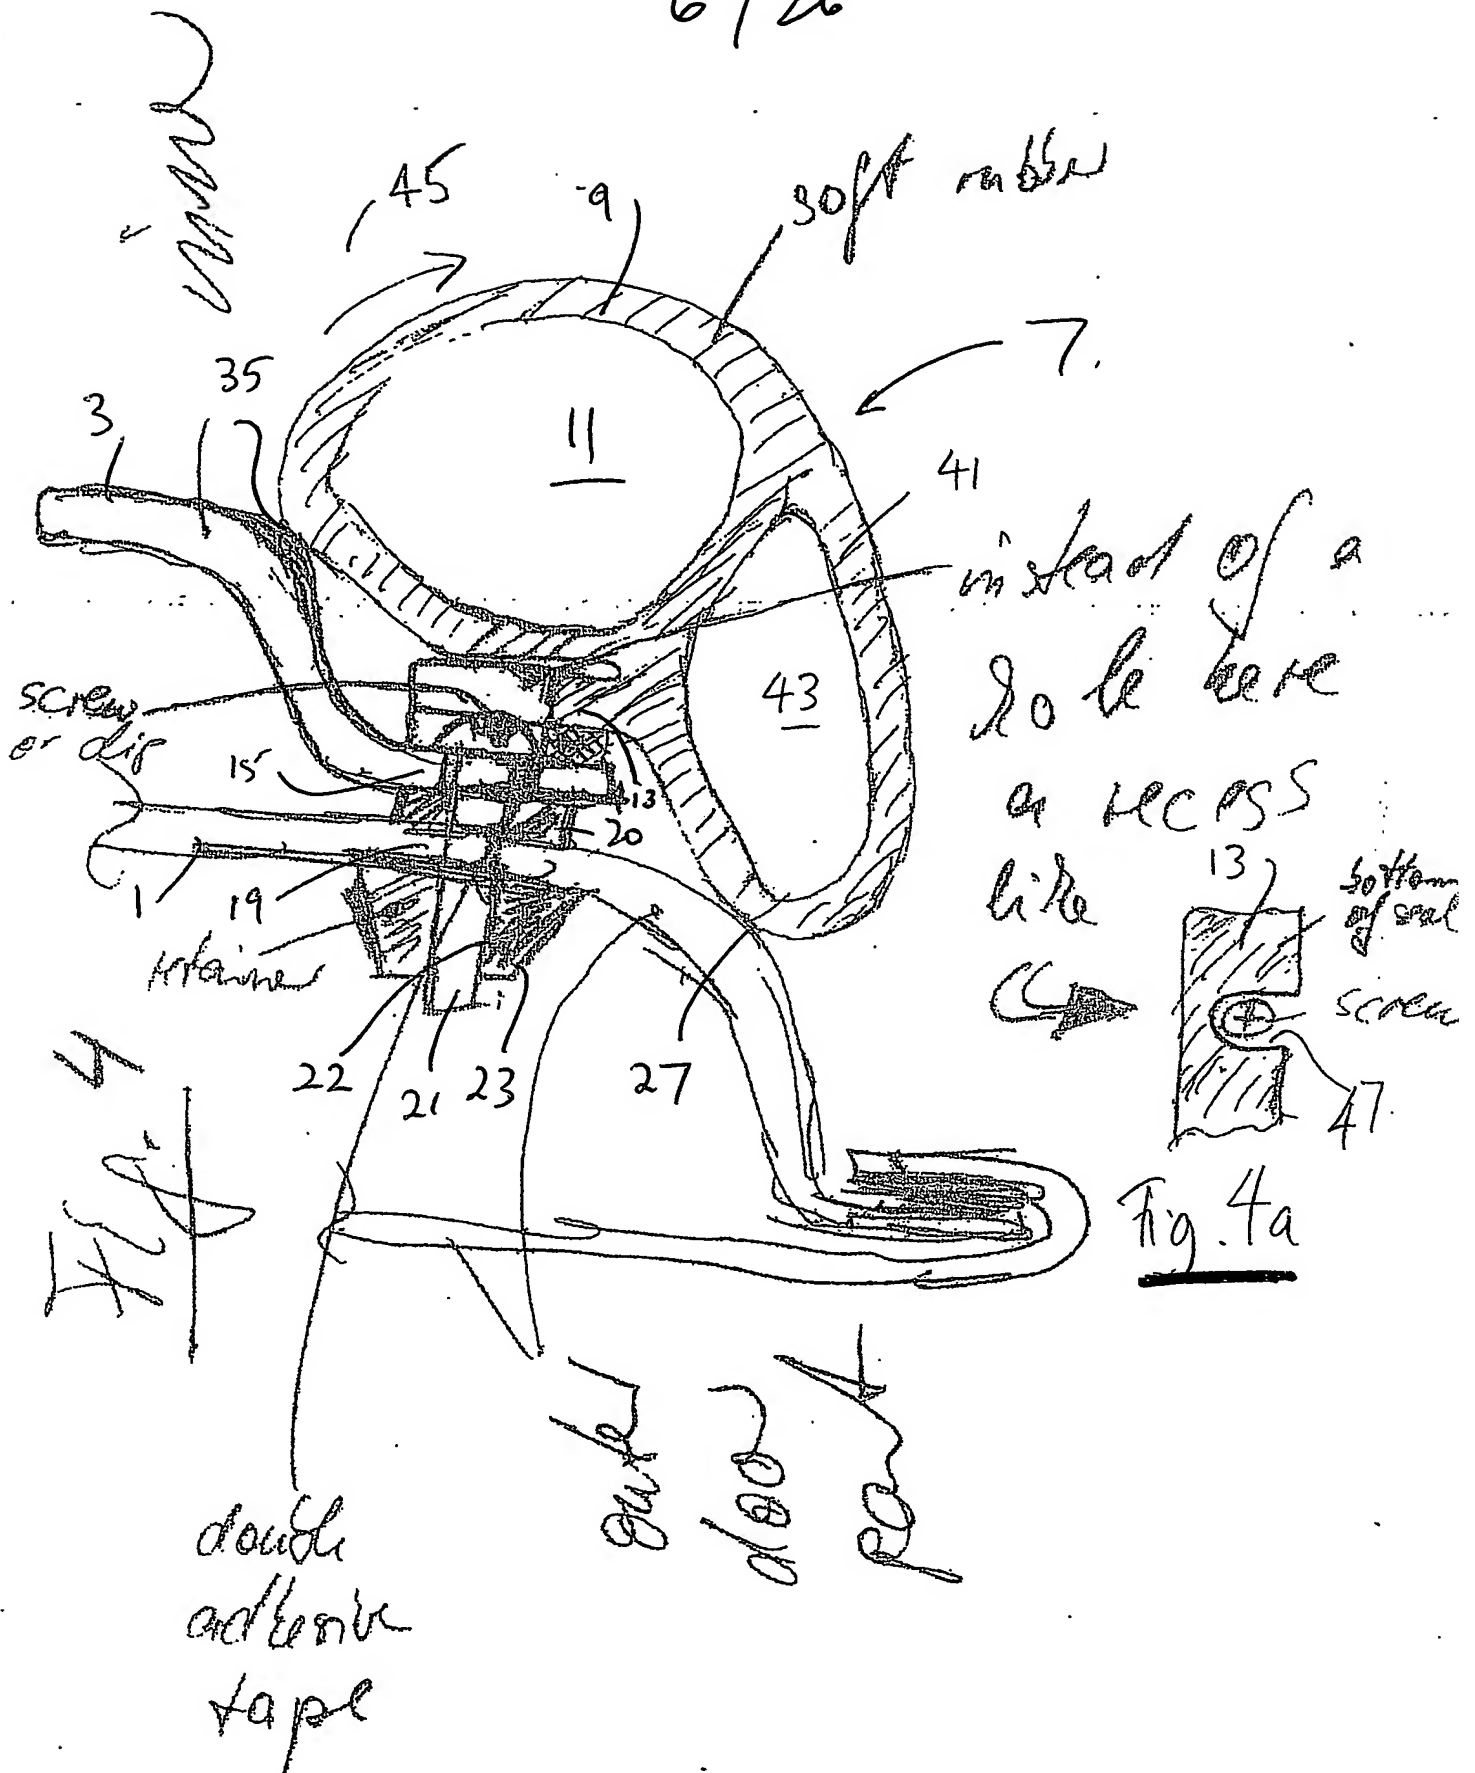 6/26
45
9
soft rubber
7.
35
3
11
41
instead of a
hole here
a recess
like
43
screw
or clip
15
13
20
1
19
retainer
13
bottom
of seal
screw
47
22
21
23
27
Fig. 4
Fig. 4a
door
double
adhesive
tape